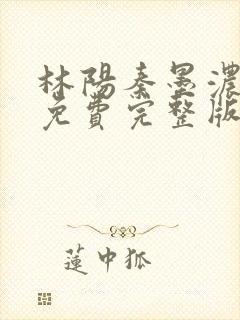 林陽秦墨濃
免費完整版
蓮中狐